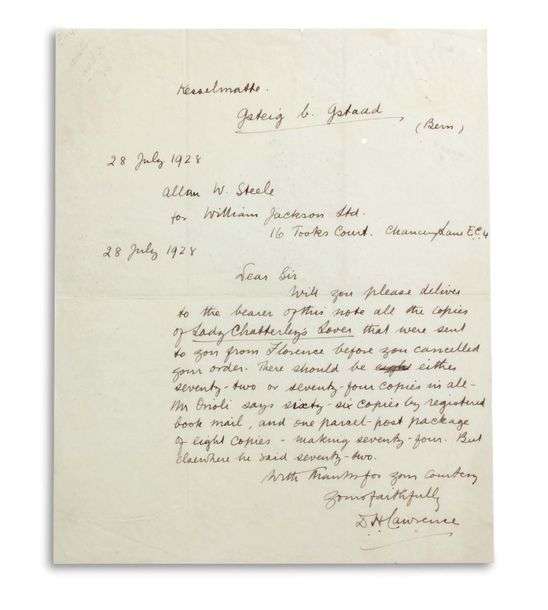 Kesselmatte.
Gsteig b. Gstaad
(Bern)
28 July 1928
Allan W. Steele
for William Jackson Ltd.
16 Tooks Court. Chancery Lane E.C.4
28 July 1928
Dear Sir
Will you please deliver
to the bearer of this note all the copies
of Lady Chatterley's Lover that were sent
to you from Florence before you cancelled
your order. There should be either
seventy-two or seventy-four copies in all –
Mr Orioli says sixty-six copies by registered
book mail, and one parcel-post package
of eight copies – making seventy-four. But
elsewhere he said seventy-two.
With Thanks for your courtesy
Yours faithfully
D. H. Lawrence